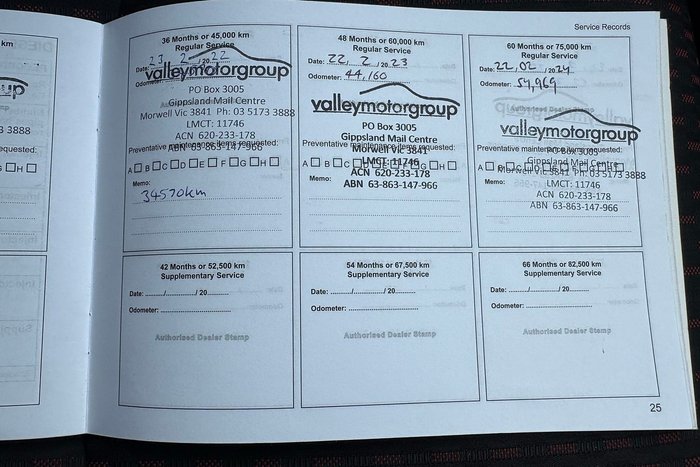 km
Service Records
36 Months or 45,000 km
Regular Service
Date: 23 / 2 / 20 22
Odometer:
valleymotorgroup
PO Box 3005
Gippsland Mail Centre
Morwell Vic 3841 Ph: 03 5173 3888
LMCT: 11746
ACN 620-233-178
ABN 63-863-147-966
Preventative maintenance items requested:
A B C D E F G H
Memo:
34570km
48 Months or 60,000 km
Regular Service
Date: 22 / 2 / 20 23
Odometer: 44,160
valleymotorgroup
PO Box 3005
Gippsland Mail Centre
Morwell Vic 3841
Preventative maintenance items requested:
LMCT: 11746
A B C D E F G H
ACN 620-233-178
Memo:
ABN 63-863-147-966
60 Months or 75,000 km
Regular Service
Date: 22 / 02 / 20 24
Odometer: 54,969
Authorised Dealer Stamp
valleymotorgroup
PO Box 3005
Preventative maintenance items requested:
Gippsland Mail Centre
A B C D E F G H
Morwell Vic 3841 Ph: 03 5173 3888
Memo:
LMCT: 11746
ACN 620-233-178
ABN 63-863-147-966
3 3888
requested:
G H
42 Months or 52,500 km
Supplementary Service
Date: ......../............/ 20.........
Odometer:
Authorised Dealer Stamp
54 Months or 67,500 km
Supplementary Service
Date: ......../............/ 20.........
Odometer:
Authorised Dealer Stamp
66 Months or 82,500 km
Supplementary Service
Date: ......../............/ 20.........
Odometer:
Authorised Dealer Stamp
25